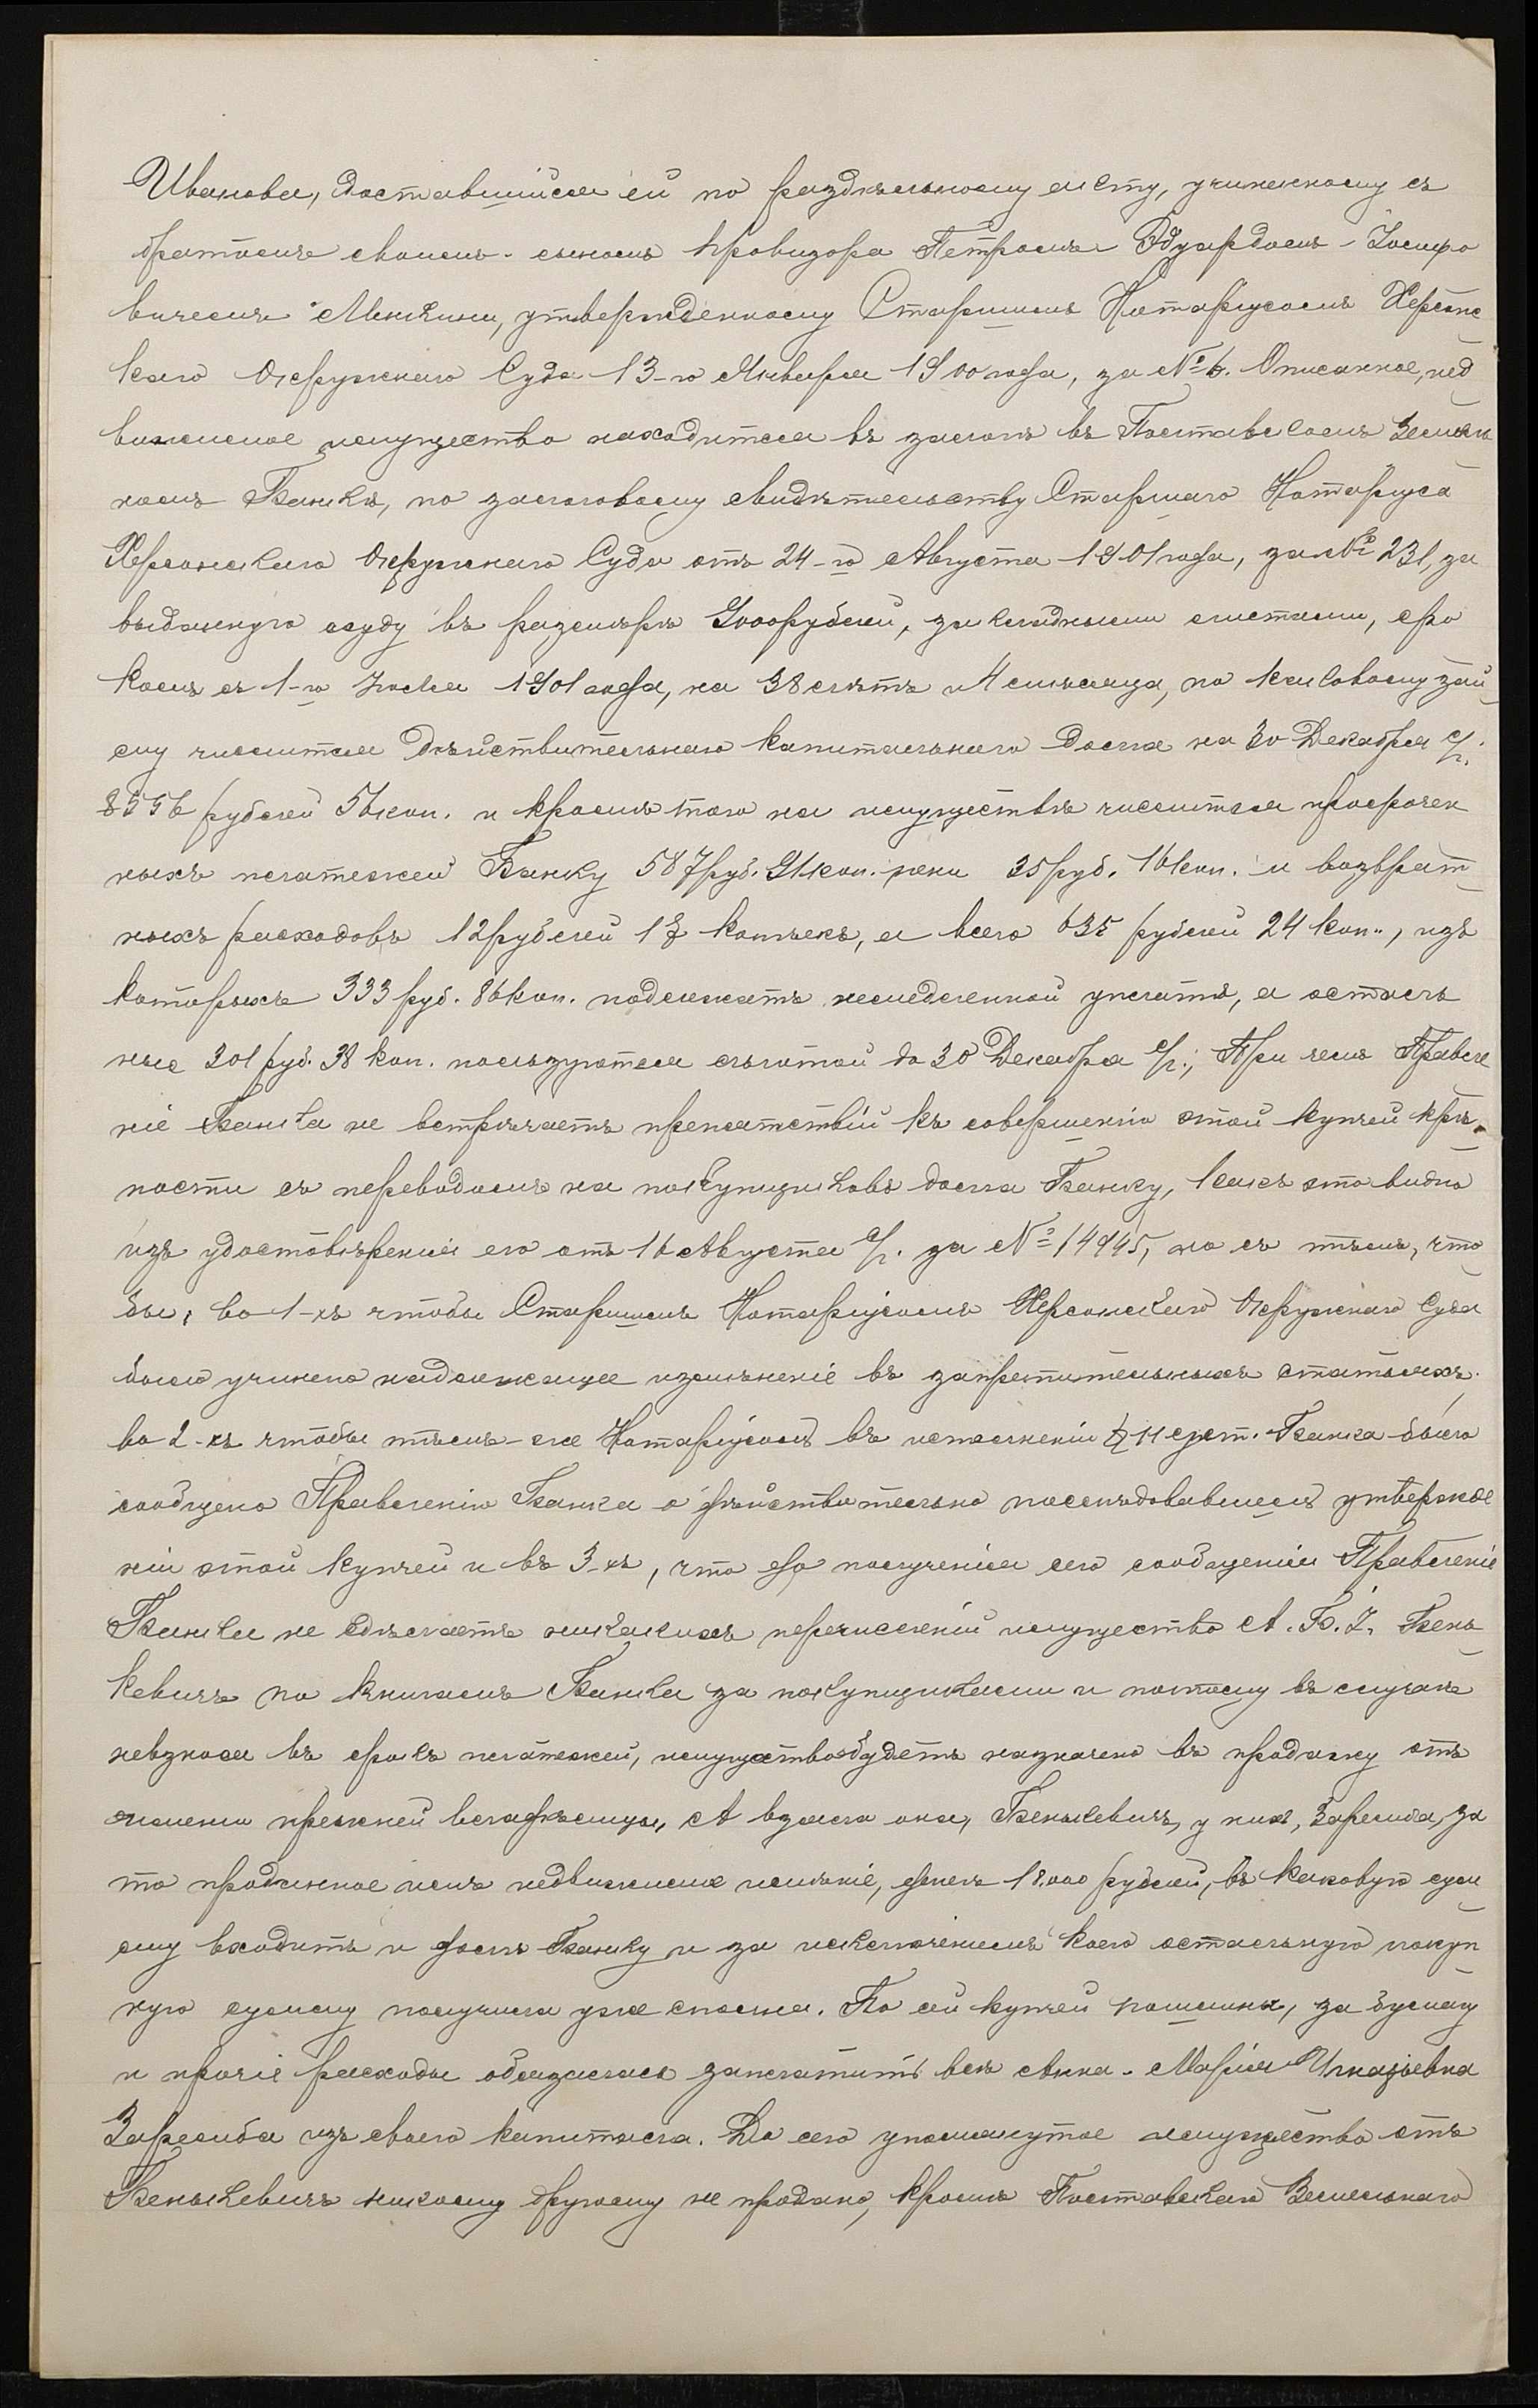 Иванова, доставшійся ей по раздѣльному акту, учиненному съ
братомъ своимъ - сыномъ провизора Петромъ Эдуардомъ-Іосифо
вичемъ утвержденному Старшимъ Нотаріусомъ Херсонс
каго Окружнаго Суда 13-го Января 1900 года, за № 6. Описанное, нед
вижимое имущество находится въ залогѣ въ Полтавскомъ Земель
номъ Банкѣ, по залоговому свидѣтельству Старшаго Нотаріуса
Херсонскаго Окружнаго Суда отъ 24-го Августа 1901 года, за № 231, за
выданную ссуду въ размѣрѣ 9000 рублей, закладными листами, сро
комъ съ 1-го Іюля 1901 года, на 38 лѣтъ и 4 мѣсяца, по каковому зай
му числится дѣйствительнаго капитальнаго долга на 30 Декабря с/г.
8556 рублей 56 коп. и кромѣ того на имуществѣ числится просрочен
ныхъ платежей Банку 587 руб. 91 коп. пени 35 руб. 16 коп. и возврат
ныхъ расходовъ 12 рублей 17 копѣекъ, а всего 635 рублей 24 коп., изъ
которыхъ 333 руб. 86 коп. подлежатъ немедленной уплатѣ, а осталь
ные 301 руб. 38 коп. пользуются льготой до 30 Декабря с/г.; При чемъ Правле
ніе Банка не встрѣчаетъ препятствій къ совершенію этой купчей крѣ
пости съ переводомъ на покупщиковъ долга Банку, какъ это видно
изъ удостовѣренія его отъ 16 Августа с/г. за № 14945, но съ тѣмъ, что
бы, во 1-хъ чтобы Старшимъ Нотаріусомъ Херсонскаго Окружнаго Суда
было учинено надлежащее измѣненіе въ запретительныхъ статьяхъ,
во 2-хъ чтобы тѣмъ-же Нотаріусомъ въ исполненіи § 11 уст. Банка было
сообщено Правленію Банка о дѣйствительно послѣдовавшемъ утвержде
ніи этой купчей и въ 3-хъ, что до полученія сего сообщенія Правленіе
Банка не сдѣлаетъ никакихъ перечисленій имущество А. Б. І. Бень
кевичъ по книгамъ Банка за покупщиками и потому въ случаѣ
невзноса въ срокъ платежей, имущество будетъ назначено въ продажу отъ
имени прежней владѣлицы, А взяла она, Бенькевичъ, у нихъ, Заремба, за
то проданное имъ недвижимое имѣніе, денегъ 18.000 рублей, въ каковую сум
му входитъ и долгъ Банку и за исключеніемъ коего остальную покуп
ную сумму получила уже сполна. По сей купчей пошлины, за бумагу
и прочіе расходы обязалась заплатить всѣ Марія Игнатьевна
Заремба изъ своего капитала. До сего упомянутое имущество отъ
Бенькевичъ никому другому не продано, кромѣ Полтавскаго Земельнаго